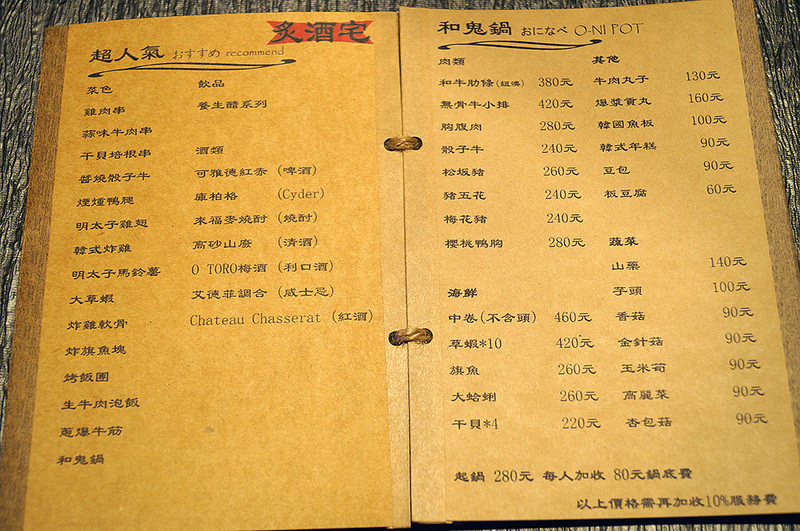 炙酒宅
超人氣 おすすめ recommend
菜色
雞肉串
蒜味牛肉串
干貝培根串
醬燒骰子牛
煙燻鴨腿
明太子雞翅
韓式炸雞
明太子馬鈴薯
大草蝦
炸雞軟骨
炸旗魚塊
烤飯團
生牛肉泡飯
蔥爆牛筋
和鬼鍋
飲品
養生醋系列
酒類
可雅德紅柰 (啤酒)
庫柏格 (Cyder)
來福麥燒酎 (燒酎)
高砂山廢 (清酒)
O TORO梅酒 (利口酒)
艾德菲調合 (威士忌)
Chateau Chasserat (紅酒)
和鬼鍋 おになべ O-NI POT
肉類
和牛肋條(紐澳) 380元
無骨牛小排 420元
胸腹肉 280元
骰子牛 240元
松坂豬 260元
豬五花 240元
梅花豬 240元
櫻桃鴨胸 280元
海鮮
中卷(不含頭) 460元
草蝦*10 420元
旗魚 260元
大蛤蜊 260元
干貝*4 220元
其他
牛肉丸子 130元
爆漿貢丸 160元
韓國魚板 100元
韓式年糕 90元
豆包 90元
板豆腐 60元
蔬菜
山藥 140元
芋頭 100元
香菇 90元
金針菇 90元
玉米筍 90元
高麗菜 90元
杏包菇 90元
起鍋 280元 每人加收 80元鍋底費
以上價格需再加收10%服務費